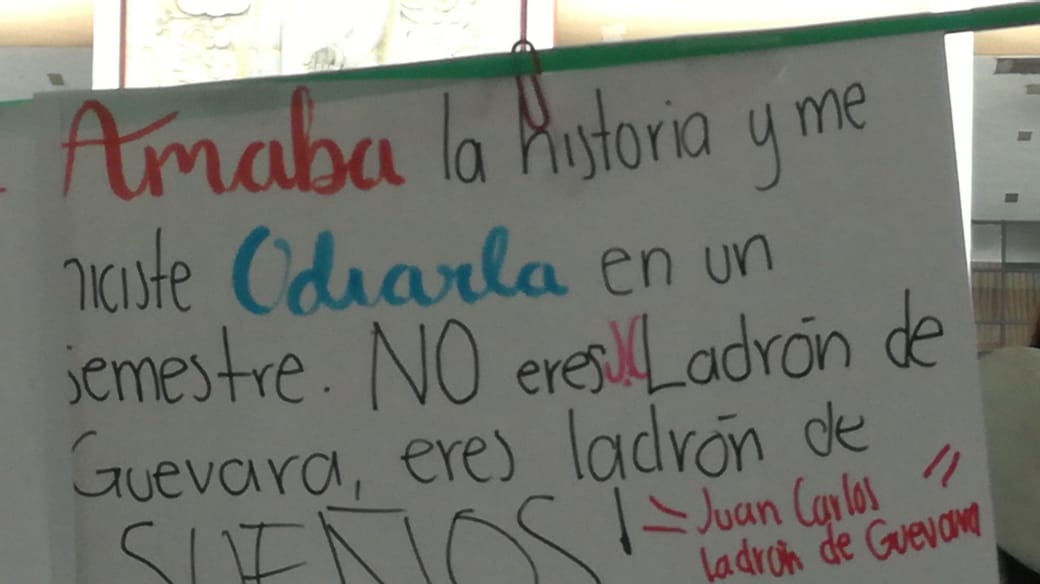 Amaba la historia y me
hiciste Odiarla en un
semestre. NO eres J.C Ladrón de
Guevara, eres ladrón de
SUEÑOS!
= Juan Carlos "
ladrón de Guevara